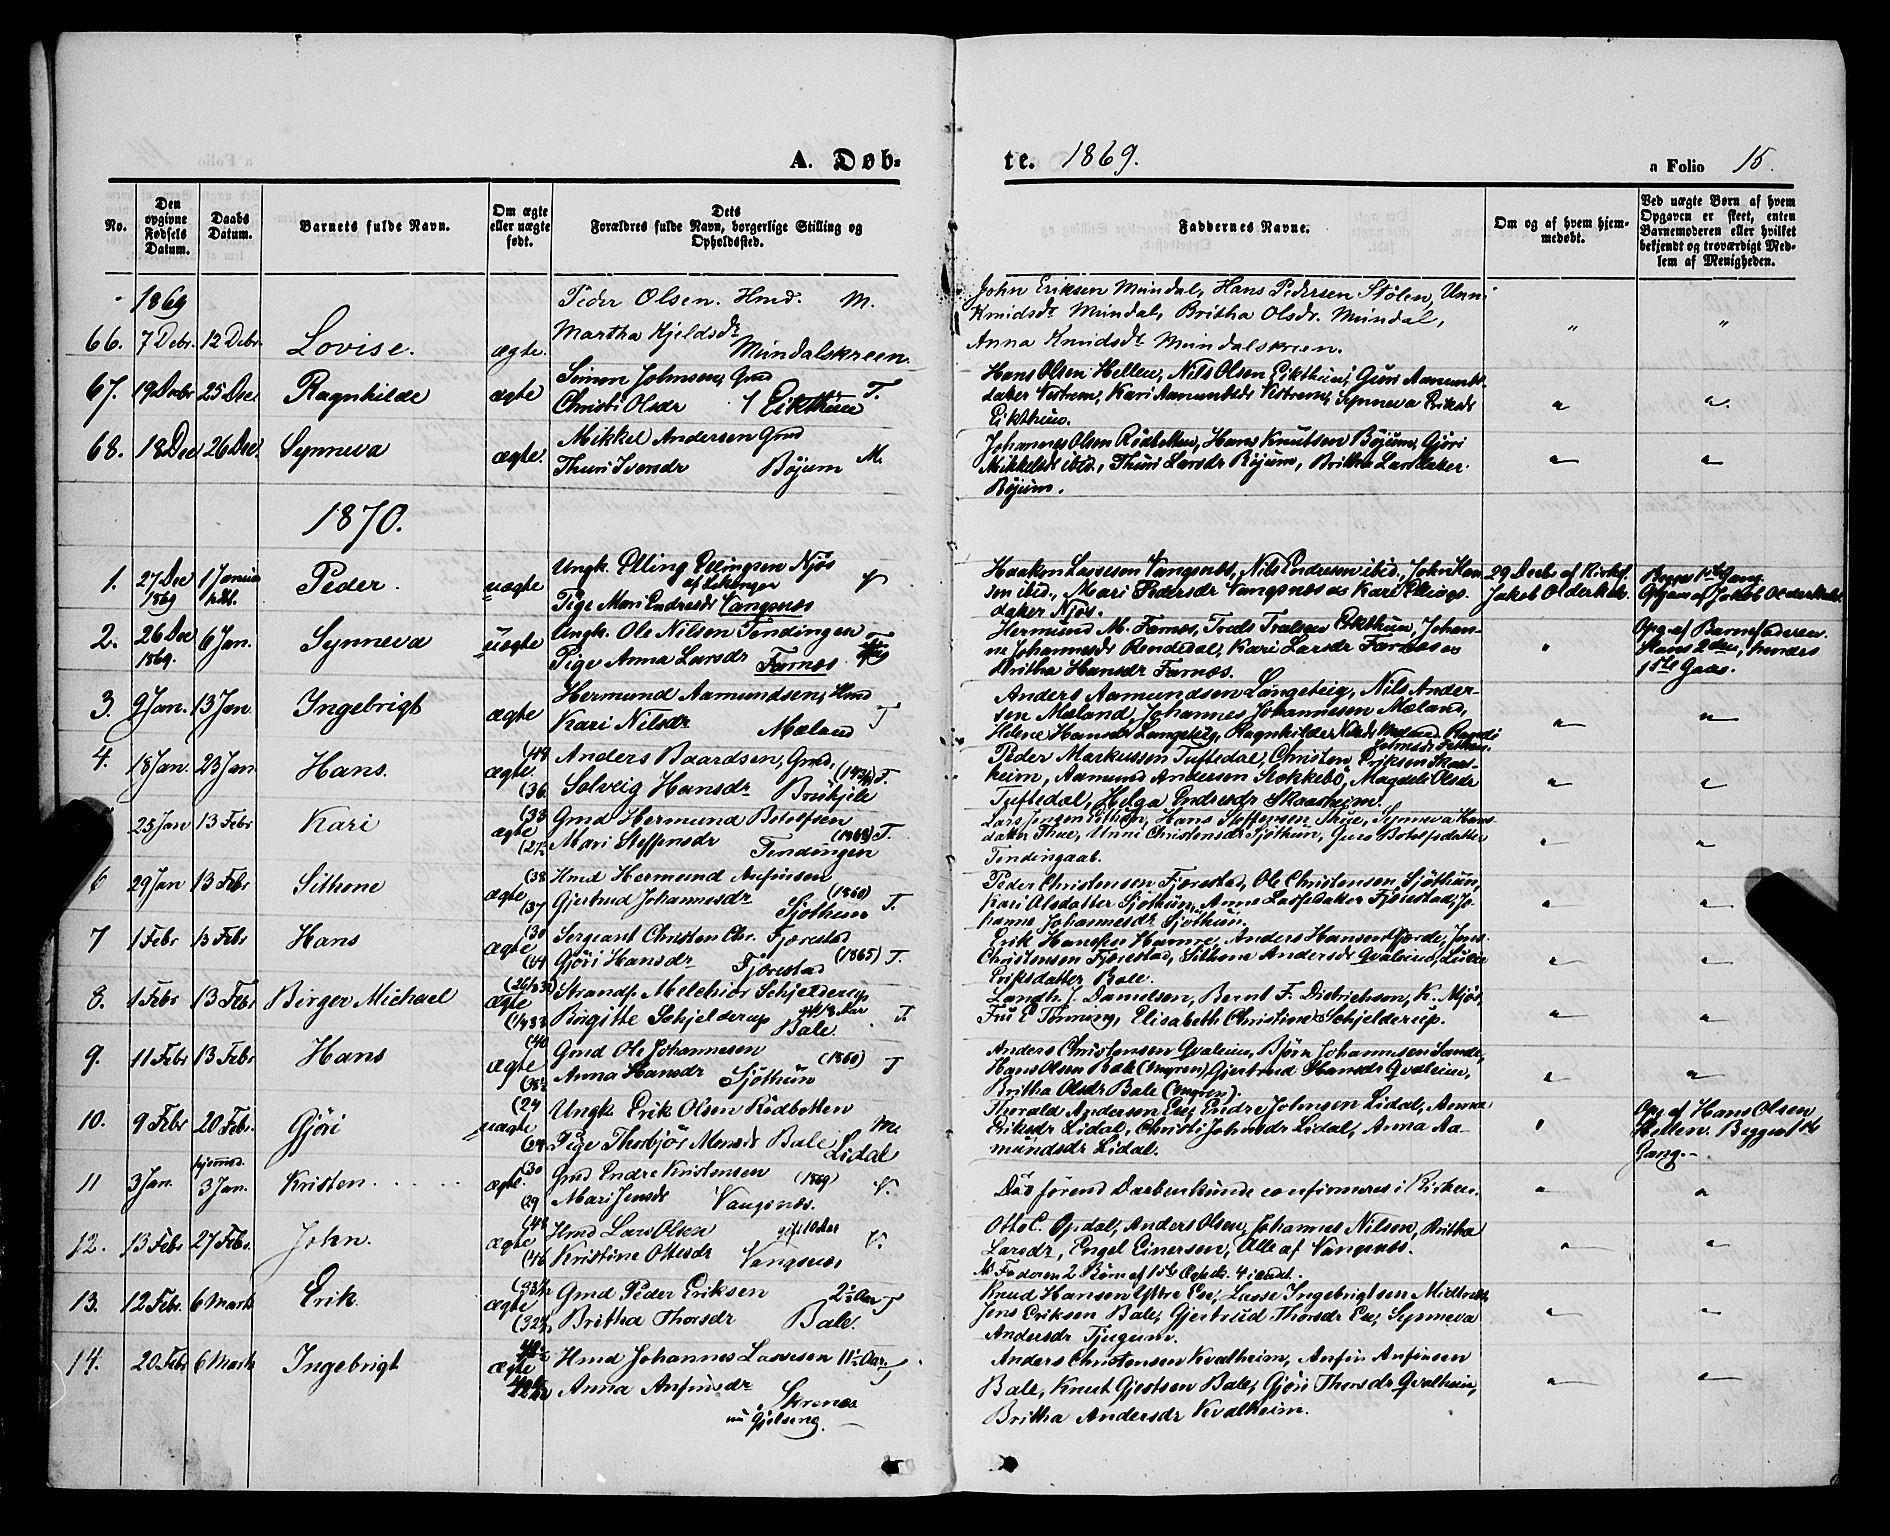 A. Døb-
te. 1869.
a Folio 15.
No.
Den opgivne Fødsels Datum.
Daabs Datum.
Barnets fulde Navn.
Om ægte eller uægte født.
Dets Forældres fulde Navn, borgerlige Stilling og Opholdsted.
Faddernes Navne.
Om og af hvem hjemmedøbt.
Ved uægte Børn af hvem Opgaven er skeet, enten Barnemoderen eller hvilket bekjendt og troværdigt Medlem af Menigheden.
1869
66. 7 Debr. 12 Debr. Lovise. ægte.
Peder Olsen. Hmd. M.
Martha Kjeldsdr
Mundalskreen.
John Eriksen Mundal, Hans Pedersen Stølen, Unni
Knudsdr Mundal, Britha Olsdr. Mundal,
Anna Knudsdr Mundalskreen.
67. 19 Debr 25 Dec Ragnhilde ægte
Simon Johnsen, Gmd
Christi Olsdr Eikthun T.
Hans Olsen Hellen, Nils Olsen Eikthun, Guri Aamunds-
datter Vestrem, Kari Aamundsdr Vestrem, Synneva Eriksdr
Eikthun.
68. 18 Dec 26 Dec. Synneva ægte.
Mikkel Andersen Gmd
Thuri Iversdr Bøjum M.
Johannes Olsen Rødbotten, Hans Knutsen Bøjum, Gjøri
Mikkelsdr ibid., Thuri Larsdr Bøjum, Britha Larsdatter
Bøjum.
1870.
1. 27 Dec 1869 1 Januar Peder. uægte
Ungk. Elling Ellingsen Njøs
af Lekanger
Pige Mari Endresdr Vangsnæs V
Haakon Lassesen Vangsnæs, Nils Endresen ibid., John Han-
sen ibid., Mari Pedersdr Vangsnæs Kari Ellings-
datter Njøs.
29 Decbr af Kirkes.
Jakob Olderbak.
Begges 1ste Gang.
Opgaven af Jakob Olderbak.
2. 26 Dec 1869. 6 Jan. Synneva uægte
Ungk. Ole Nilsen Tendingen
Pige Anna Larsdr Farnæs. T
Hermund M. Farnæs, Trols Trulsen Eikthun, Johan-
ne Johannesdr Rendedal, Kari Larsdr Farnæs
Britha Hansdr Farnæs.
Opg. af Barnefaderen.
Hans 2den, hendes
1ste Gang.
3. 9 Jan. 13 Jan Ingebrigt ægte
Hermund Aamundsen, Hmd
Kari Nilsdr Mæland T
Anders Aamundsen Langeteig, Nils Ander-
sen Mæland, Johannes Johannesen Mæland,
Helene Hansdr Langeteig, Ragnhilde Nilsdr Mæland
4. 18 Jan. 23 Jan. Hans. ægte.
(49 Anders Baardsen, Gmd,
(36. Solveig Hansdr T.
Peder Markussen Tuftedal, Christen Eriksen Skaas-
heim, Aamund Andersen Stokkebø, Magdeli Olsdr
Tuftedal, Helga Endresdr Skaasheim.
25 Jan 13 Febr Kari ægte
(33 Gmd Hermund Botolfsen
Mari Steffensdr (1868) T.
Tendingen
Hans Steffensen Thue, Synneva Hans-
datter Thue, Unni Christensdr Sjøthun, Guro Botolfsdatter
Tendingaab.
6 29 Jan 13 Febr Sithene ægte
(38 Hmd Hermund Anfinsen
(37 Gjertrud Johannesdr (1860)
Sjøthun T.
Peder Christensen Fjærestad, Ole Christensen Sjøthun,
Kari Olsdatter Sjøthun, Anne Lassedatter Fjærestad, Jo-
hanne Johannesdr Sjøthun.
7 1 Febr 13 Febr Hans ægte
(30 Sergeant Christen Chr. Fjærestad
Gjøri Hansdr Fjærestad (1865) T.
Erik Hansen Hamre, Anders Hansen Hjørde, Jens
Christensen Fjærestad, Sithene Andersdr Qvaleim,
Eriksdatter Bale.
8. 1 Febr 13 Febr Birger Michael ægte
Strandf. Melchior Schjelderup
Birgitte Schjelderup Bale. T.
Landh. J. Danielsen, Bernt F. Dietrichson, K. Mjøs,
Fru E Tønning, Elisabeth Christine Schjelderup.
9. 11 Febr 13 Febr Hans ægte
(40 Gmd Ole Johannesen
Anna Hansdr Sjøthun (1860) T
Anders Christensen Qvaleim, Bjørn Johannesen Sande,
Hans Olsen Bale (Engren), Gjertrud Hansdr Qvaleim,
Britha Olsdr Bale (Engren).
10. 9 Febr 20 Febr. Gjøri uægte
(24 Ungk. Erik Olsen Rødbotten
Pige Thorbjør Monsdr Bale M
Lidal
Thorald Andersen Ese, Endre Johnsen Lidal, Anna
Eriksdr Lidal, Christi Johnsdr Lidal, Anna Aa-
mundsdr Lidal.
Opg af Hans Olsen
Hellen. Begges 1ste
Gang.-
11 3 Jan. hjemmed. 3 Jan. Kristen ægte
(30 Gmd Endre Kristensen
(29 Mari Jensdr Vangsnæs. (1869) V.
Død førend Daaben kunde confirmeres i Kirken.
12. 13 Febr 27 Febr. John. ægte
(48 Hmd Lars Olsen gift 10 Aar
(46 Kristine Ottesdr Vangsnæs V.
Otto C. Opdal, Anders Olsen, Johannes Nilsen, Britha
Larsdr, Engel Einersen, Alle af Vangsnæs.
N. Faderen 2 Børn af 1ste Ægtesk. 4 i andet.
13. 12 Febr. 6 Marts Erik. ægte
Gmd Peder Eriksen 2½ Aar T
Britha Thorsdr Bale.
Knud Hansen Yttre Ese, Lasse Ingebrigtsen
Jens Eriksen Bale, Gjertrud Thorsdr Ese, Synneva
Andersdr Tjugum.
14. 20 Febr 6 Marts Ingebrigt ægte
Hmd Johannes Lassesen 11½ Aar T
Anna Anfinsdr
nu Gjelseng.
Anders Christensen Kvalheim, Anfin Anfinsen
Bale, Knut Gjestsen Bale, Gjøri Thorsdr Qvalheim,
Britha Andersdr Kvalheim.